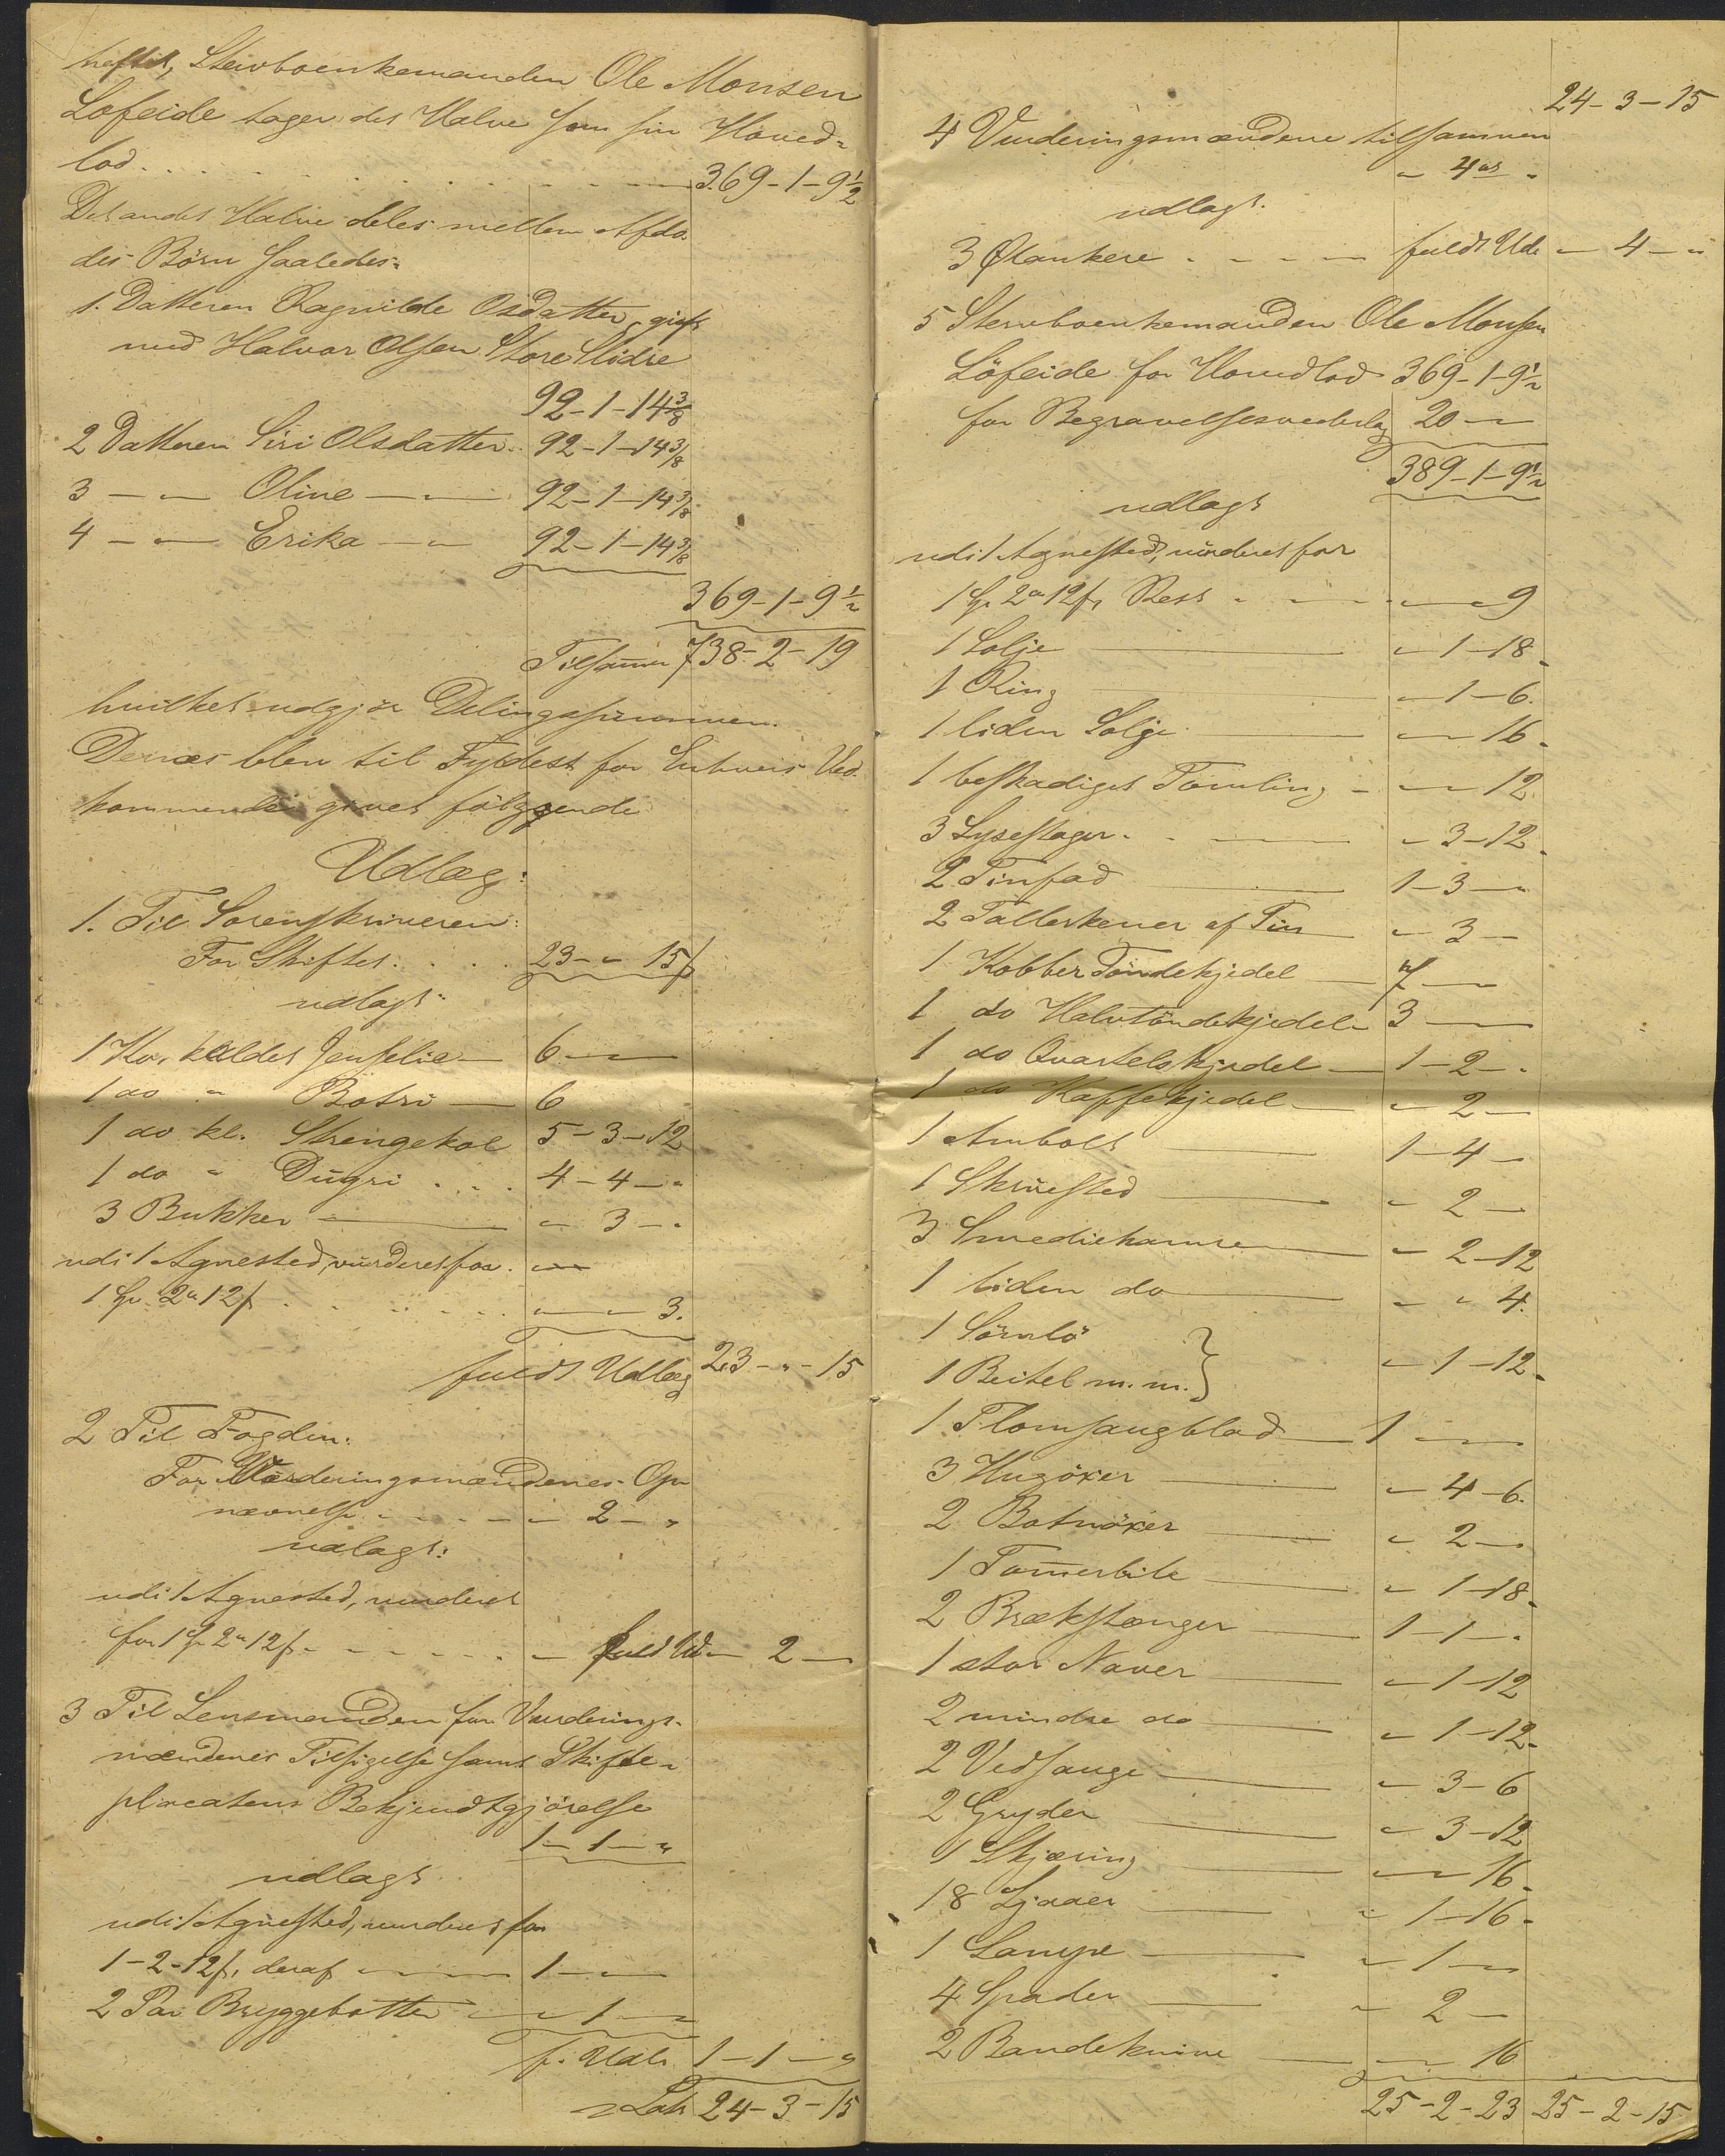 heftet, Stervboenkemanden Ole Monsen
Lofeide tager det Halve som sin Hoved-
lod . . . . 369-1-9½
Det andet Halve deles mellem Afdø-
des Börn saaledes:
1. Datteren Ragnilde Osdatter, gift
med Halvor Olsen Store Slidre
92-1-14⅜
2 Datteren Siri Olsdatter 92-1-14⅜
3 — " — Oline — " — 92-1-14⅜
4 — " — Erika — " 92-1-14⅜
369-1-9½
Tilsammen 738-2-19
hvilket udgjör Delingssummen.
Dernæs blev til Fyldest for Enhvers Ved-
kommende givet fölggende
Udlæg:
1. Til Sorenskriveren:
For Skiftet . . . 23 - " - 15 ß
udlagt:
1 Ko, kaldet Jenselie — 6 —
1 do " Botri — 6
1 do kl. Strengekol 5-3-12
1 do " Dügri . . . 4-4-"
3 Bukker — " 3 - "
udi 1 Agnested, vürderet for. " —
1 Sp. 2" 12 ß . . . " — " 3.
fuldt Udlæg 23 - " - 15
2 Til Fogden:
For Vürderingsmændenes Op-
nævnelse - - - - " 2 - "
udlagt:
udi 1 Agnested, vurderet
for 1 Sp 2" 12 ß - - - . " fuld Ud. " 2 —
3 Til Lensmanden for Vurderings-
mændenes Tilsigelse samt Skifte-
placatens Bekjendtgjörelse
1 - 1 - "
udlagt
udi 1 Agnested, vurderet for
1-2-12 ß, deraf — 1 - "
2 Par Bryggebotter " 1 —
f. Udl. 1 - 1 - "
Lats 24-3-15
24-3-15
4 Vurderingsmændene tilsammen
" 4 ort "
udlagt.
3 Ølankere . - - - fuldt Udl. " 4 - "
5 Stervboenkemanden Ole Monsen
Löfeide for Hovedlod 369-1-9½
for Begravelsesvederlag 20 - "
389-1-9½
udlagt
udi 1 Agnested, vürderet for
1 Sp. 2" 12 ß, Rest - - " — 9
1 Solje — " 1-18
1 Ring — " 1-6.
1 liden Solge — " — 16.
1 beskadiget Tömling - " — 12.
3 Lysestager. — " 3-12.
2 Tinfad — 1-3 - "
2 Tallerkener af Tin — " 3 —
1 Kobber Töndekjedel — 7 —
1 do Halvtöndekjedel " 3 —
1 do Qvartelskjedel — 1-2 - "
1 do Kaffekjedel — " 2 —
1 Ambolt — 1-4 —
1 Skrüested — " 2 —
3 Smediehamre — " 2-12
1 liden do — " " 4.
1 Sörnlö
1 Beitel m. m. } " 1-12.
1 Flomsaugblad — 1 —
3 Hugöxer — " 4-6.
2 Botnöxer — " 2 - "
1 Tommerbile — " 1-18.
2 Brækstænger — 1-1 - "
1 stor Naver — " 1-12
2 mindre do — " 1-12.
2 Vedsauge — " 3-6
2 Gryder — " 3-12
1 Skjæring — " — 16.
18 Ljaaer — " 1-16.
1 Lampe — " 1 —
4 Spader — " 2 —
2 Bandeknive — " — 16
25-2-23 25-2-15